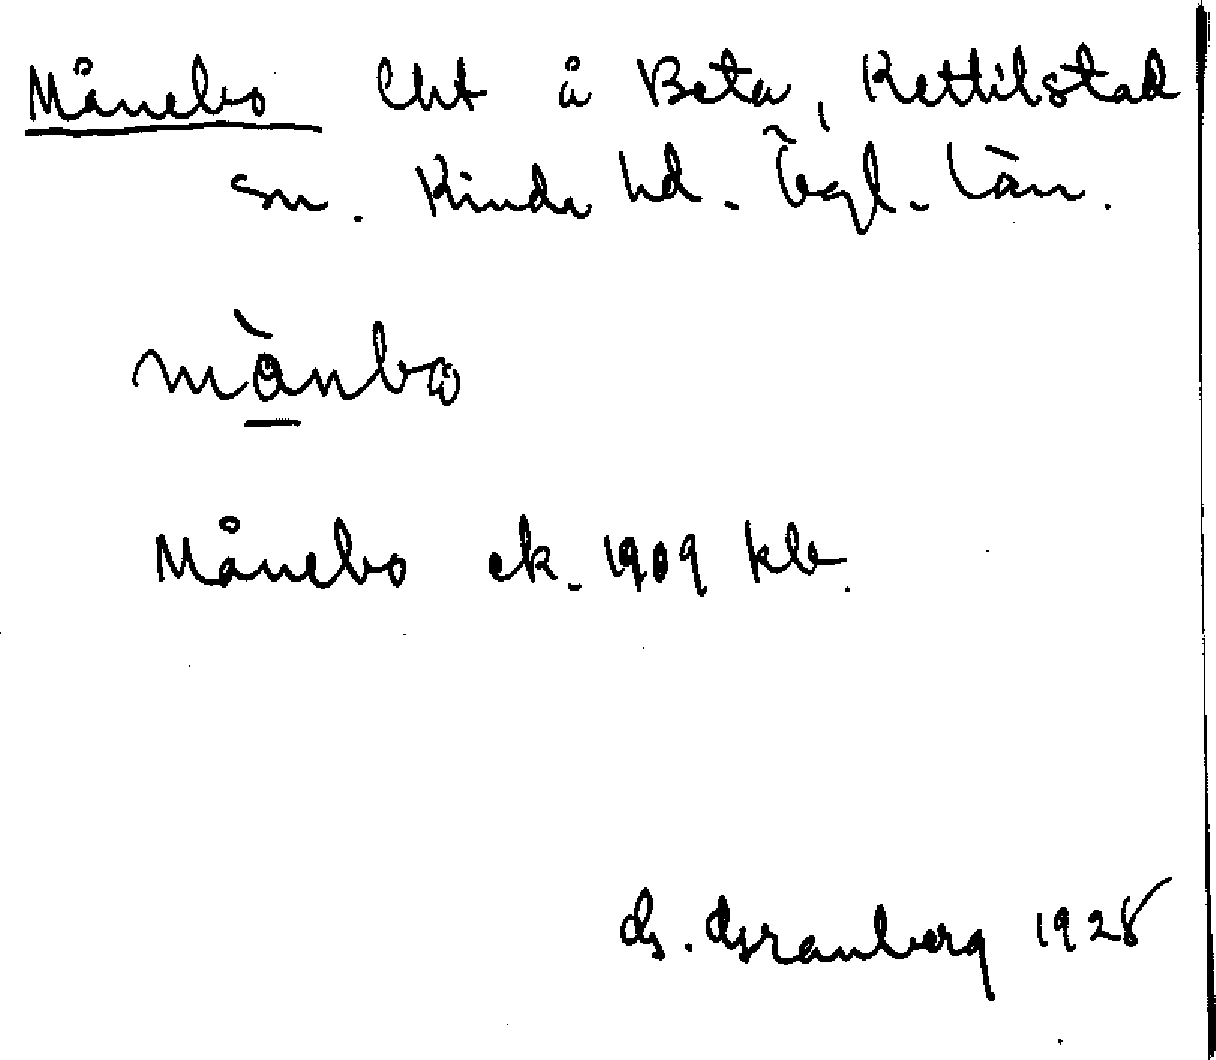 Månebo lht å Beta, Kettilstad
sn. Kinda hd. Ögl. län.
månbo
Månebo ek. 1909 kb.
G. Granberg 1928